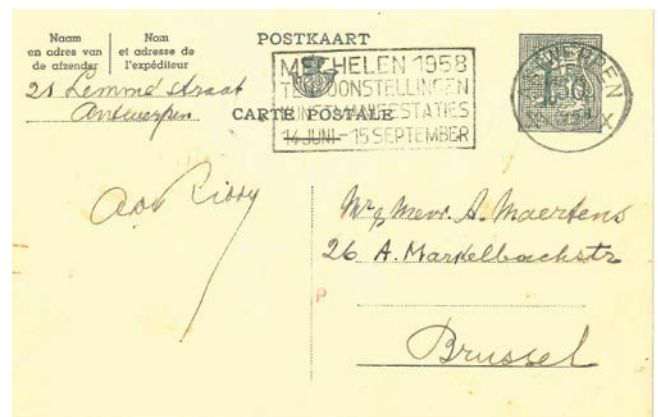 Naam
en adres van
de afzender
Nom
et adresse de
l'expéditeur
POSTKAART
CARTE POSTALE
MECHELEN 1958
TENTOONSTELLINGEN
KUNSTMANIFESTATIES
14 JUNI - 15 SEPTEMBER
ANTWERPEN
X
1F50
21 Lemmé straat
Antwerpen
Mr & Mevr. A. Maertens
26 A. Markelbachstr
P
Brussel